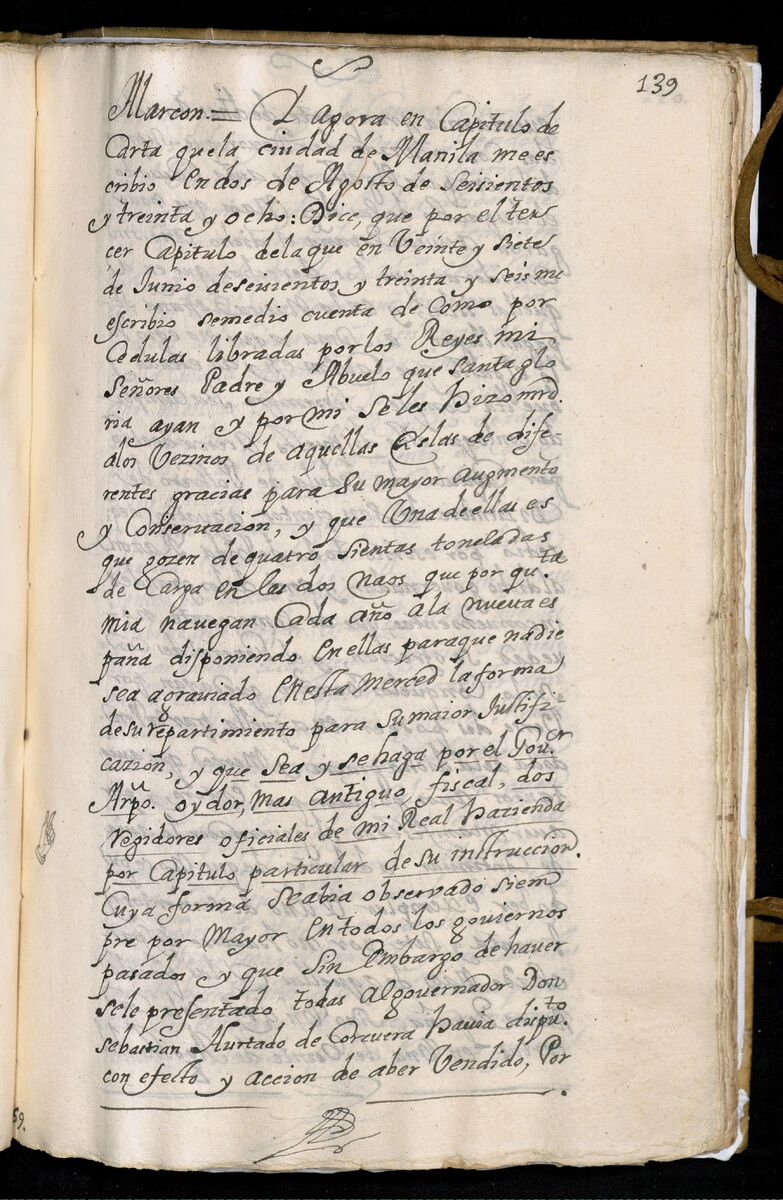 139
Marcon.= Y agora en Capitulo de
Carta quela ciudad de Manila me es
cribio en dos de Agosto de seisientos
y treinta y ocho: Dice, que por el ter
cer Capitulo delaque en Veinte y siete
de Junio deseisientos y treinta y seis me
escribio semedio cuenta de como por
Cedulas libradas porlos Reyes mi
Señores Padre y Abuelo que santa glo
ria ayan y por mi seles hizo mrd.
alos Vezinos de aquellas Yslas de dife
rentes gracias para su mayor augmento
y Conservacion, y que Una deellas es
que gozen de quatro sientas toneladas
de Carga en las dos Naos que por quta
mia navegan Cada año ala nueva es
paña disponiendo en ellas paraque nadie
sea agraviado en esta Merced la forma
desu repartimiento para sumaior Justifi-
cazion, y que sea y sehaga por el Gouor
Arpo. oydor, mas antiguo, fiscal, dos
regidores oficiales de mi Real hazienda
por Capitulo particular de su instruccion.
Cuya forma seabia observado siem
pre por Mayor en todos los goviernos
pasados y que sin embargo de haver
sele presentado todas algovernador Don
sebastian Hurtado de Corcuera havia disputo
con efecto y accion de aber Vendido, Por
59.